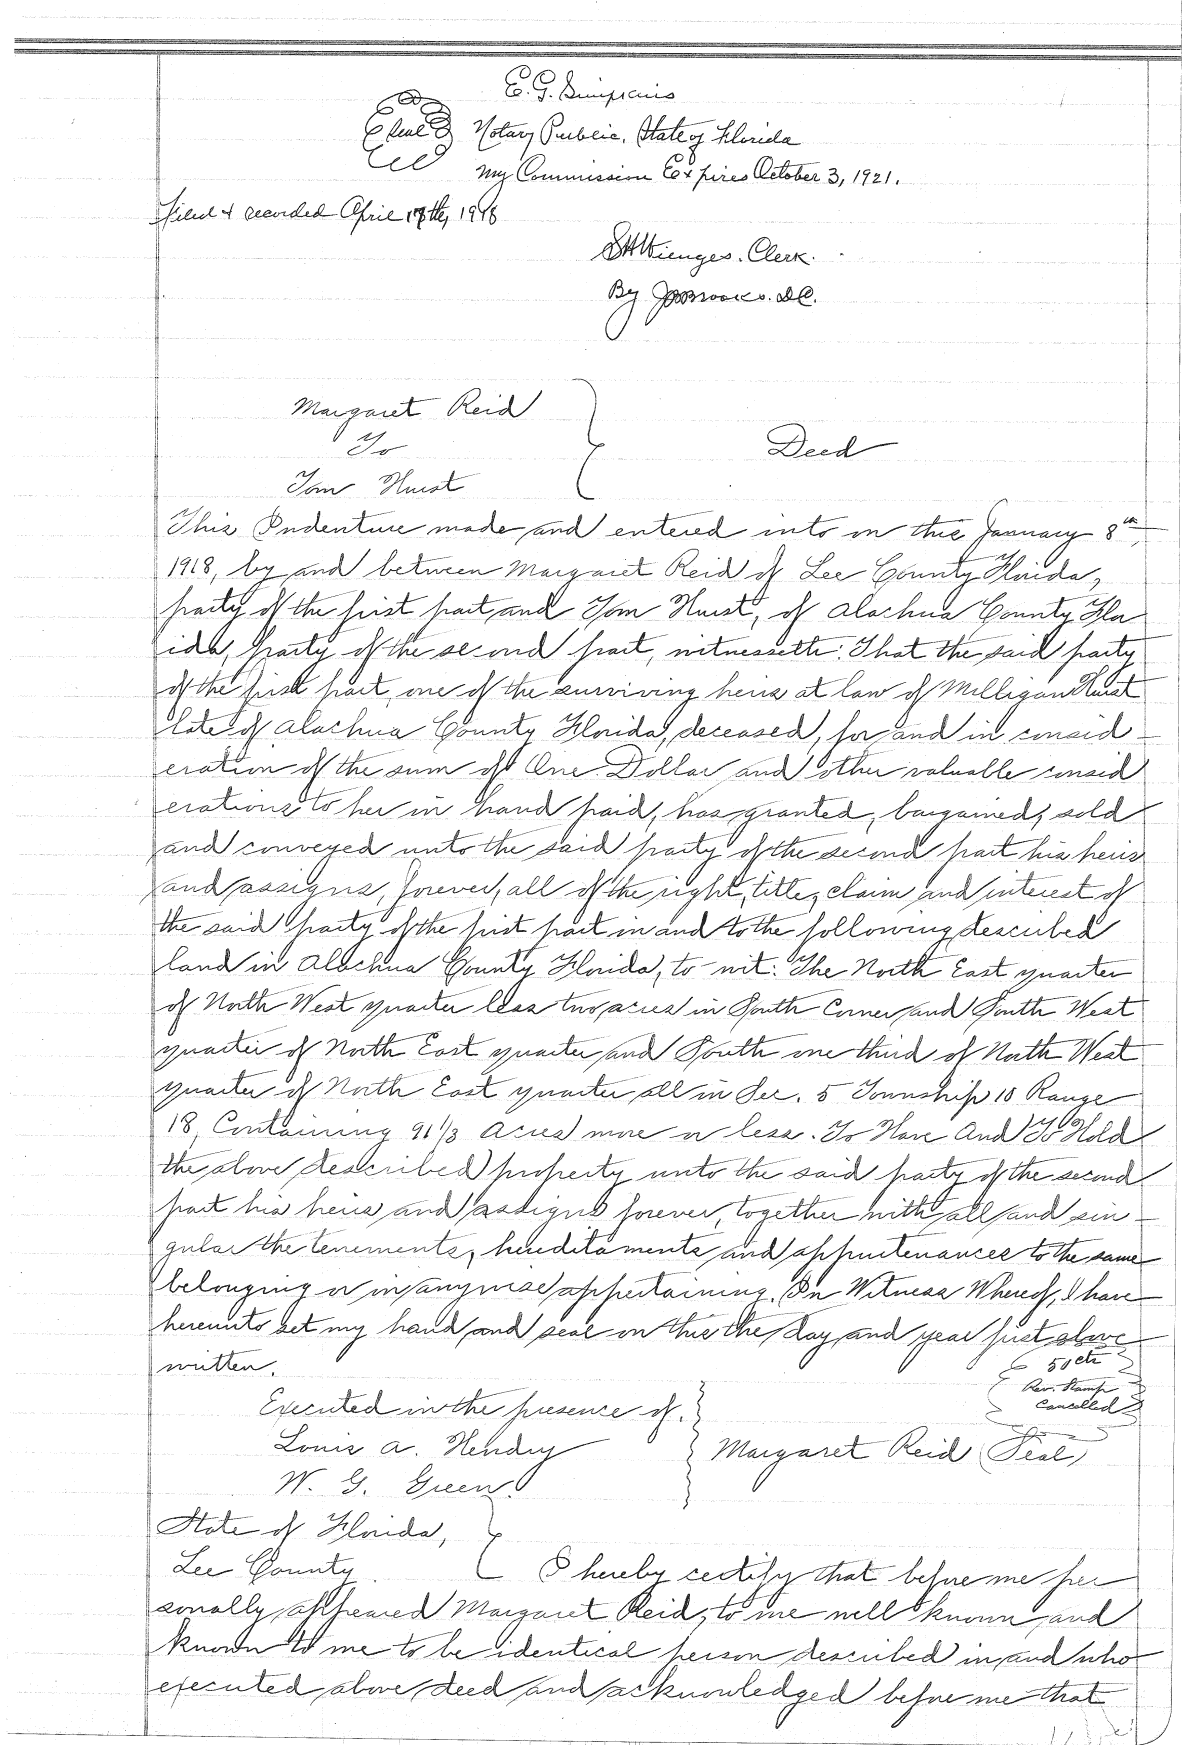 E. G. Simpkins
Seal Notary Public, State of Florida
My Commission Expires October 3, 1921.
Filed & recorded April 17th, 1918
S H Wienges. Clerk.
By J. Brooks. D.C.
Margaret Reid
To
Deed
Tom Hurst
This Indenture made and entered into on this January 8th,
1918, by and between Margaret Reid of Lee County Florida,
party of the first part, and Tom Hurst, of Alachua County Flo
ida, party of the second part, witnesseth: That the said party
of the first part, one of the surviving heirs at law of Milligan Hurst
late of Alachua County Florida, deceased, for and in consid
eration of the sum of One Dollar and other valuable consid
erations to her in hand paid, has granted, bargained, sold
and conveyed unto the said party of the second part his heirs
and assigns, forever, all of the right, title, claim and interest of
the said party of the first part in and to the following described
land in Alachua County Florida, to wit: The North East quarter
of North West quarter less two acres in South Corner and South West
quarter of North East quarter and South one third of North West
quarter of North East quarter all in Sec. 5 Township 10 Range
18, Containing 91 1/3 Acres more or less. To Have And To Hold
the above described property unto the said party of the second
part his heirs and assigns forever, together with all and sin-
gular the tenements, hereditaments and appurtenances to the same
belonging or in anywise appertaining. In Witness Whereof, I have
hereunto set my hand and seal on this the day and year first above
written.
50 cts
Rev. Stamp
Cancelled
Executed in the presence of.
Louis A. Hendry
Margaret Reid (Seal)
W. G. Green
State of Florida,
Lee County. I hereby certify that before me per
sonally appeared Margaret Reid, to me well known, and
known to me to be identical person described in and who
executed above deed and acknowledged before me that